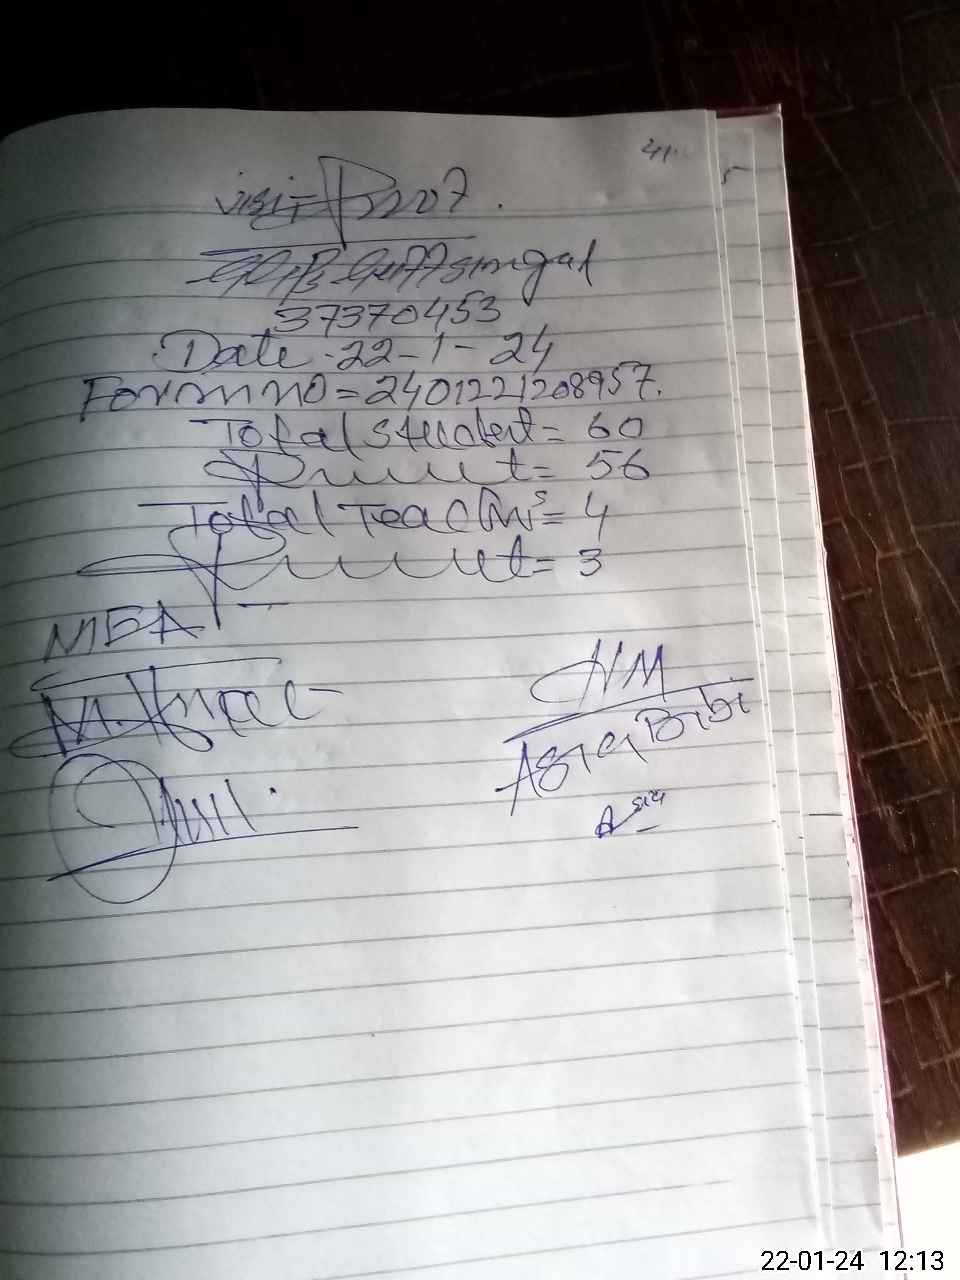 41
visit Proof.
37370453
Date - 22-1-24
Form no = 2401221208957.
Total Student = 60
Present = 56
Total Teachers = 4
Present = 3
MEA
HM
Asia Bibi
Asia
22-01-24 12:13